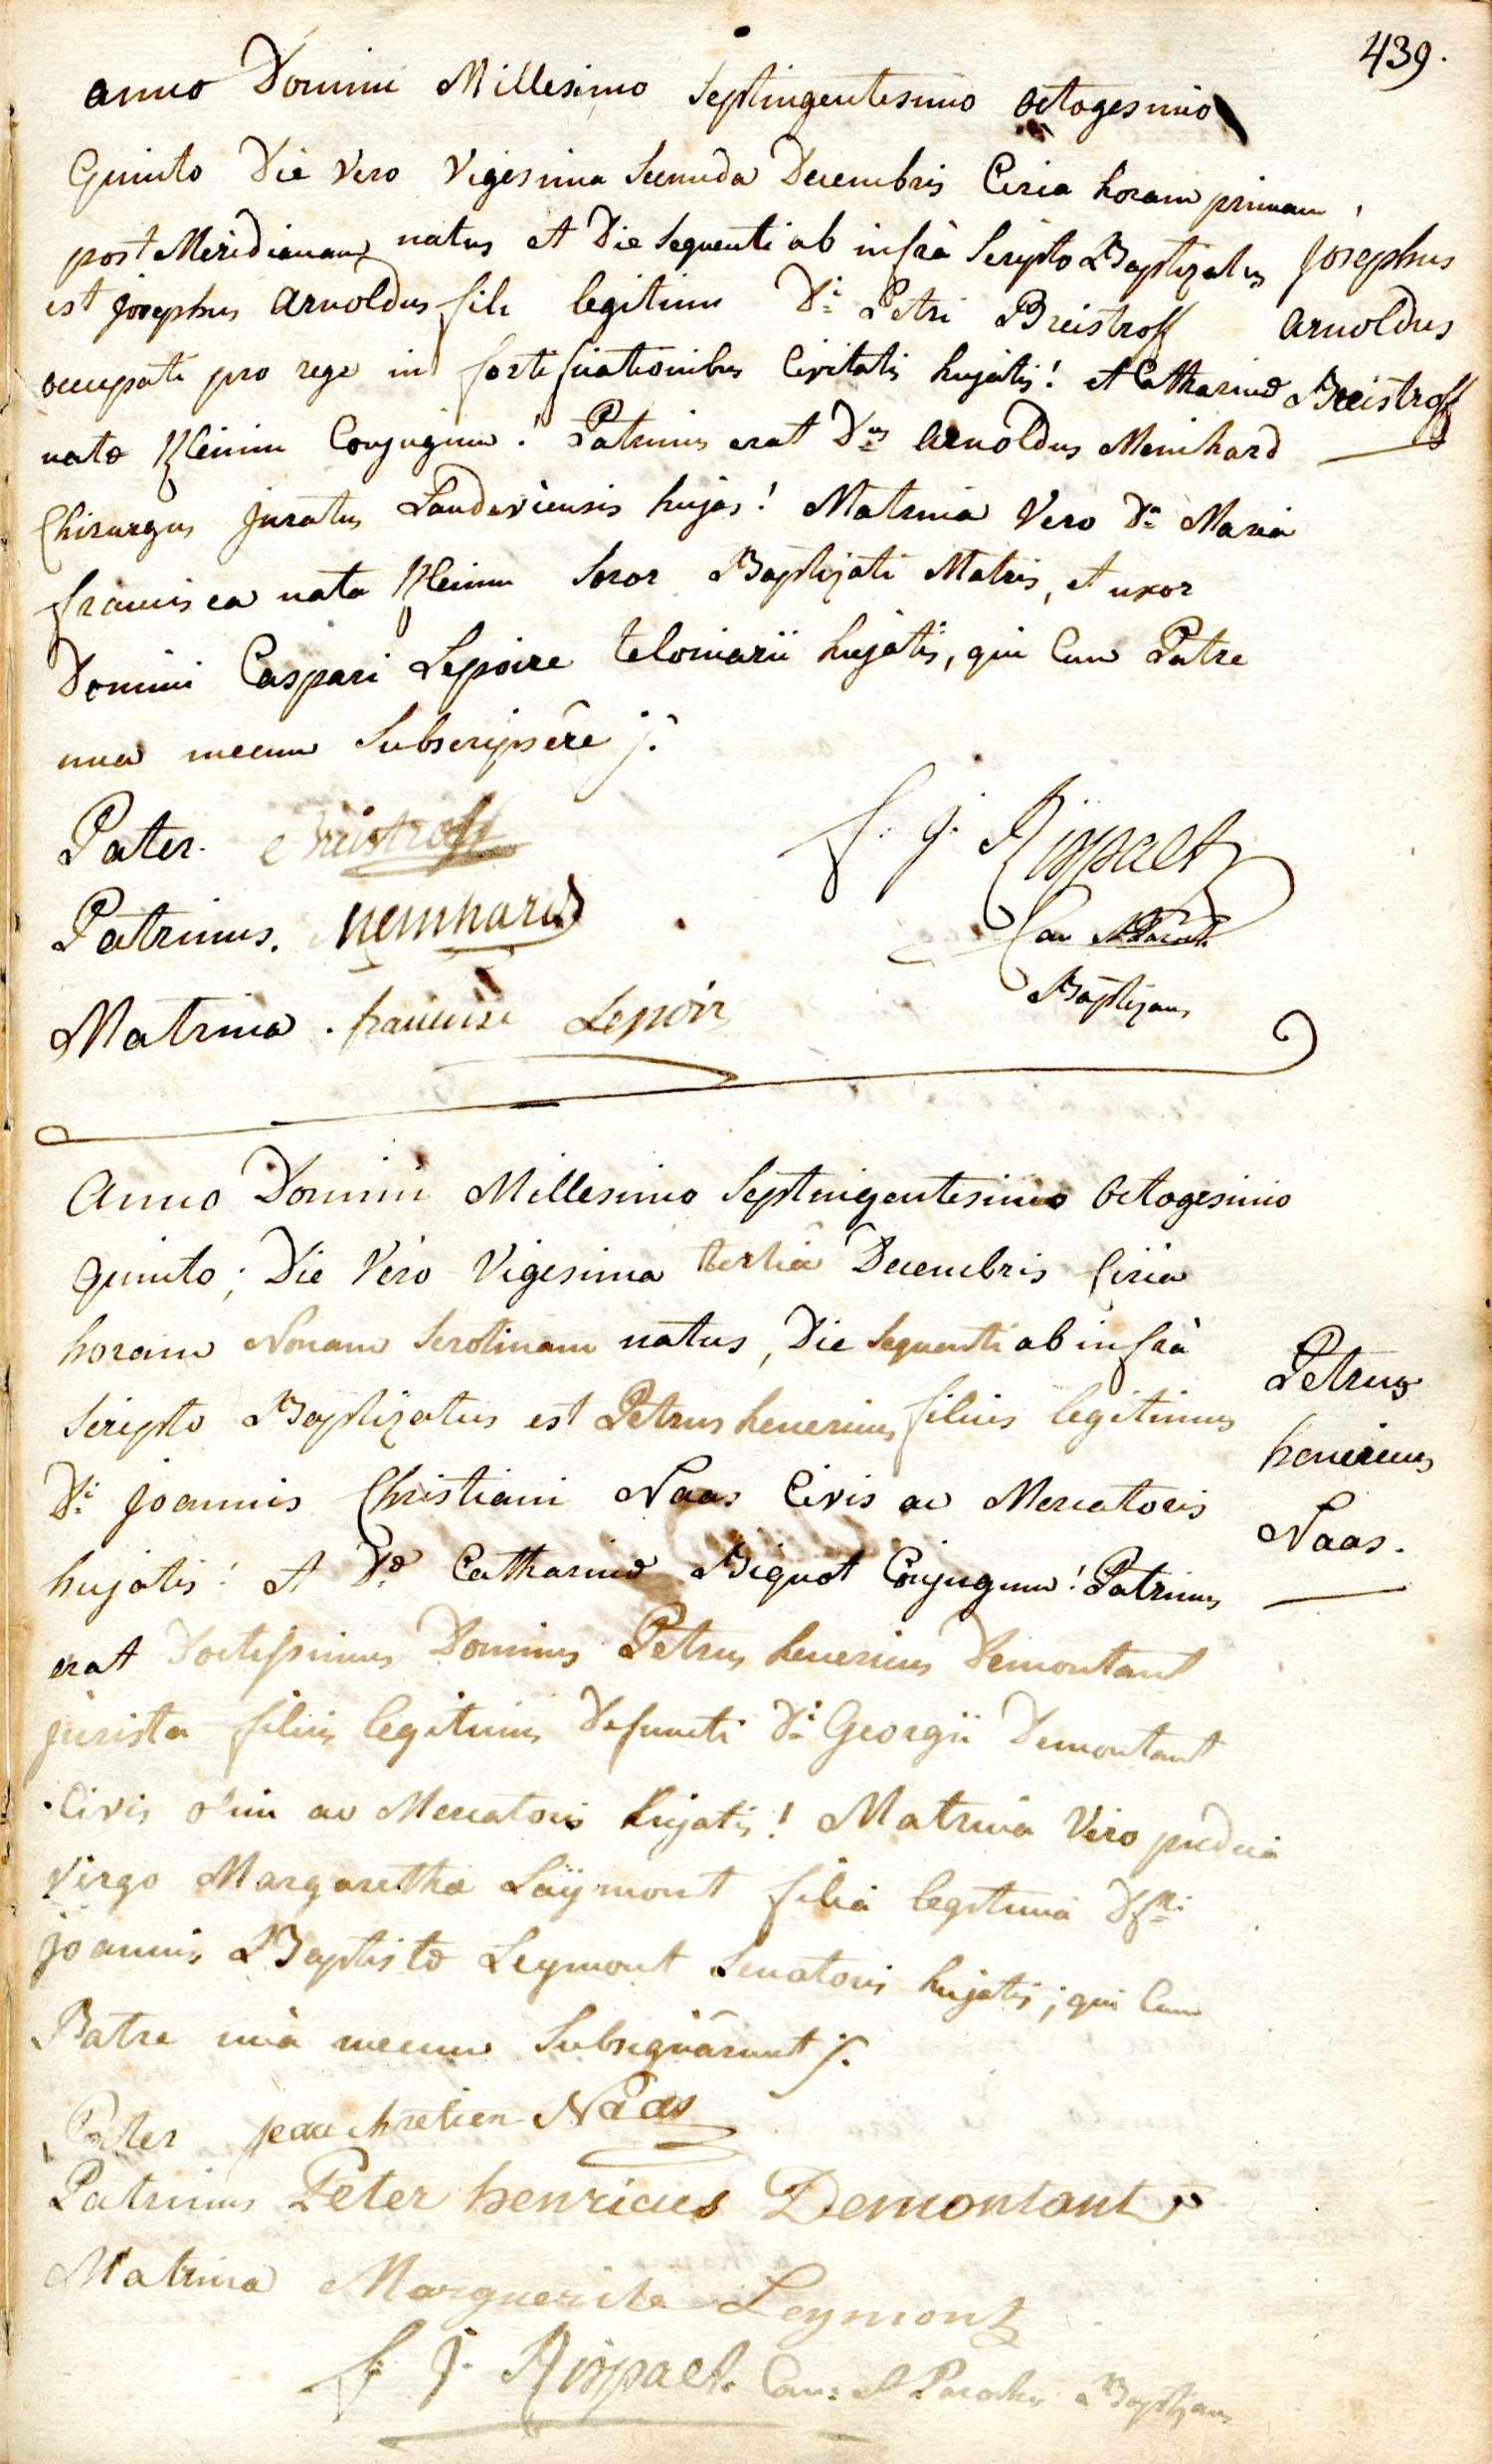 439.
anno Domini Millesimo Septingentesimo octogesimo
Quinto Die Vero Vigesima Secunda Decembris Circa horam primam
post Meridianam natus et Die Sequenti ab infrà Scripto Baptizatus
est josephus arnoldus fili legitim Di Petri Breistroff
occupati pro rege in fortificationibus Civitatis hujatis! et Catharinæ
natæ Kleinin Conjugum! Patrinus erat Dus arnoldus Meinhard
Chirurgus juratus Landaviensis hujas! Matrina Vero Da Maria
francisca nata Kleinin Soror Baptizati Matris, et uxor
Domini Caspari Lepoire teloniarii hujatis, qui Cum Patre
una mecum Subscripsêre j.
josephus
arnoldus
Breistroff
Pater. Breistroff
Patrinus. Meinhard
Matrina. francise Lepoir
f. j. Rispael
Can
Baptizans
Anno Domini Millesimo Septingentesimo Octogesimo
Quinto; Die Vero Vigesima tertiâ Decembris Circa
horam Nonam Serotinam natus, Die Sequenti ab infrà
Scripto Baptizatus est Petrus henericus filius legitimus
Di joannis Christiani Naas Civis ac Mercatoris
hujatis! et Dæ Catharinæ Biquot Conjugum! Patrinus
erat Doctissimus Dominus Petrus henericus Demontant
jurista filius legitimus Defuncti Di Georgii Demontant
Civis olim ac Mercatoris hujatis! Matrina Vero pudica
Virgo Margaretha Laÿmont filia legitima
joannis Baptistæ Leymont Senatoris hujatis; qui Cum
Patre unà mecum Subsignârunt j.
Petrus
henericus
Naas.
Pater jean chretien Naas
Patrinus Peter henricus Demontant
Matrina Marguerite Leymont
f. j. Rispael. Can: et Parochus Baptizans